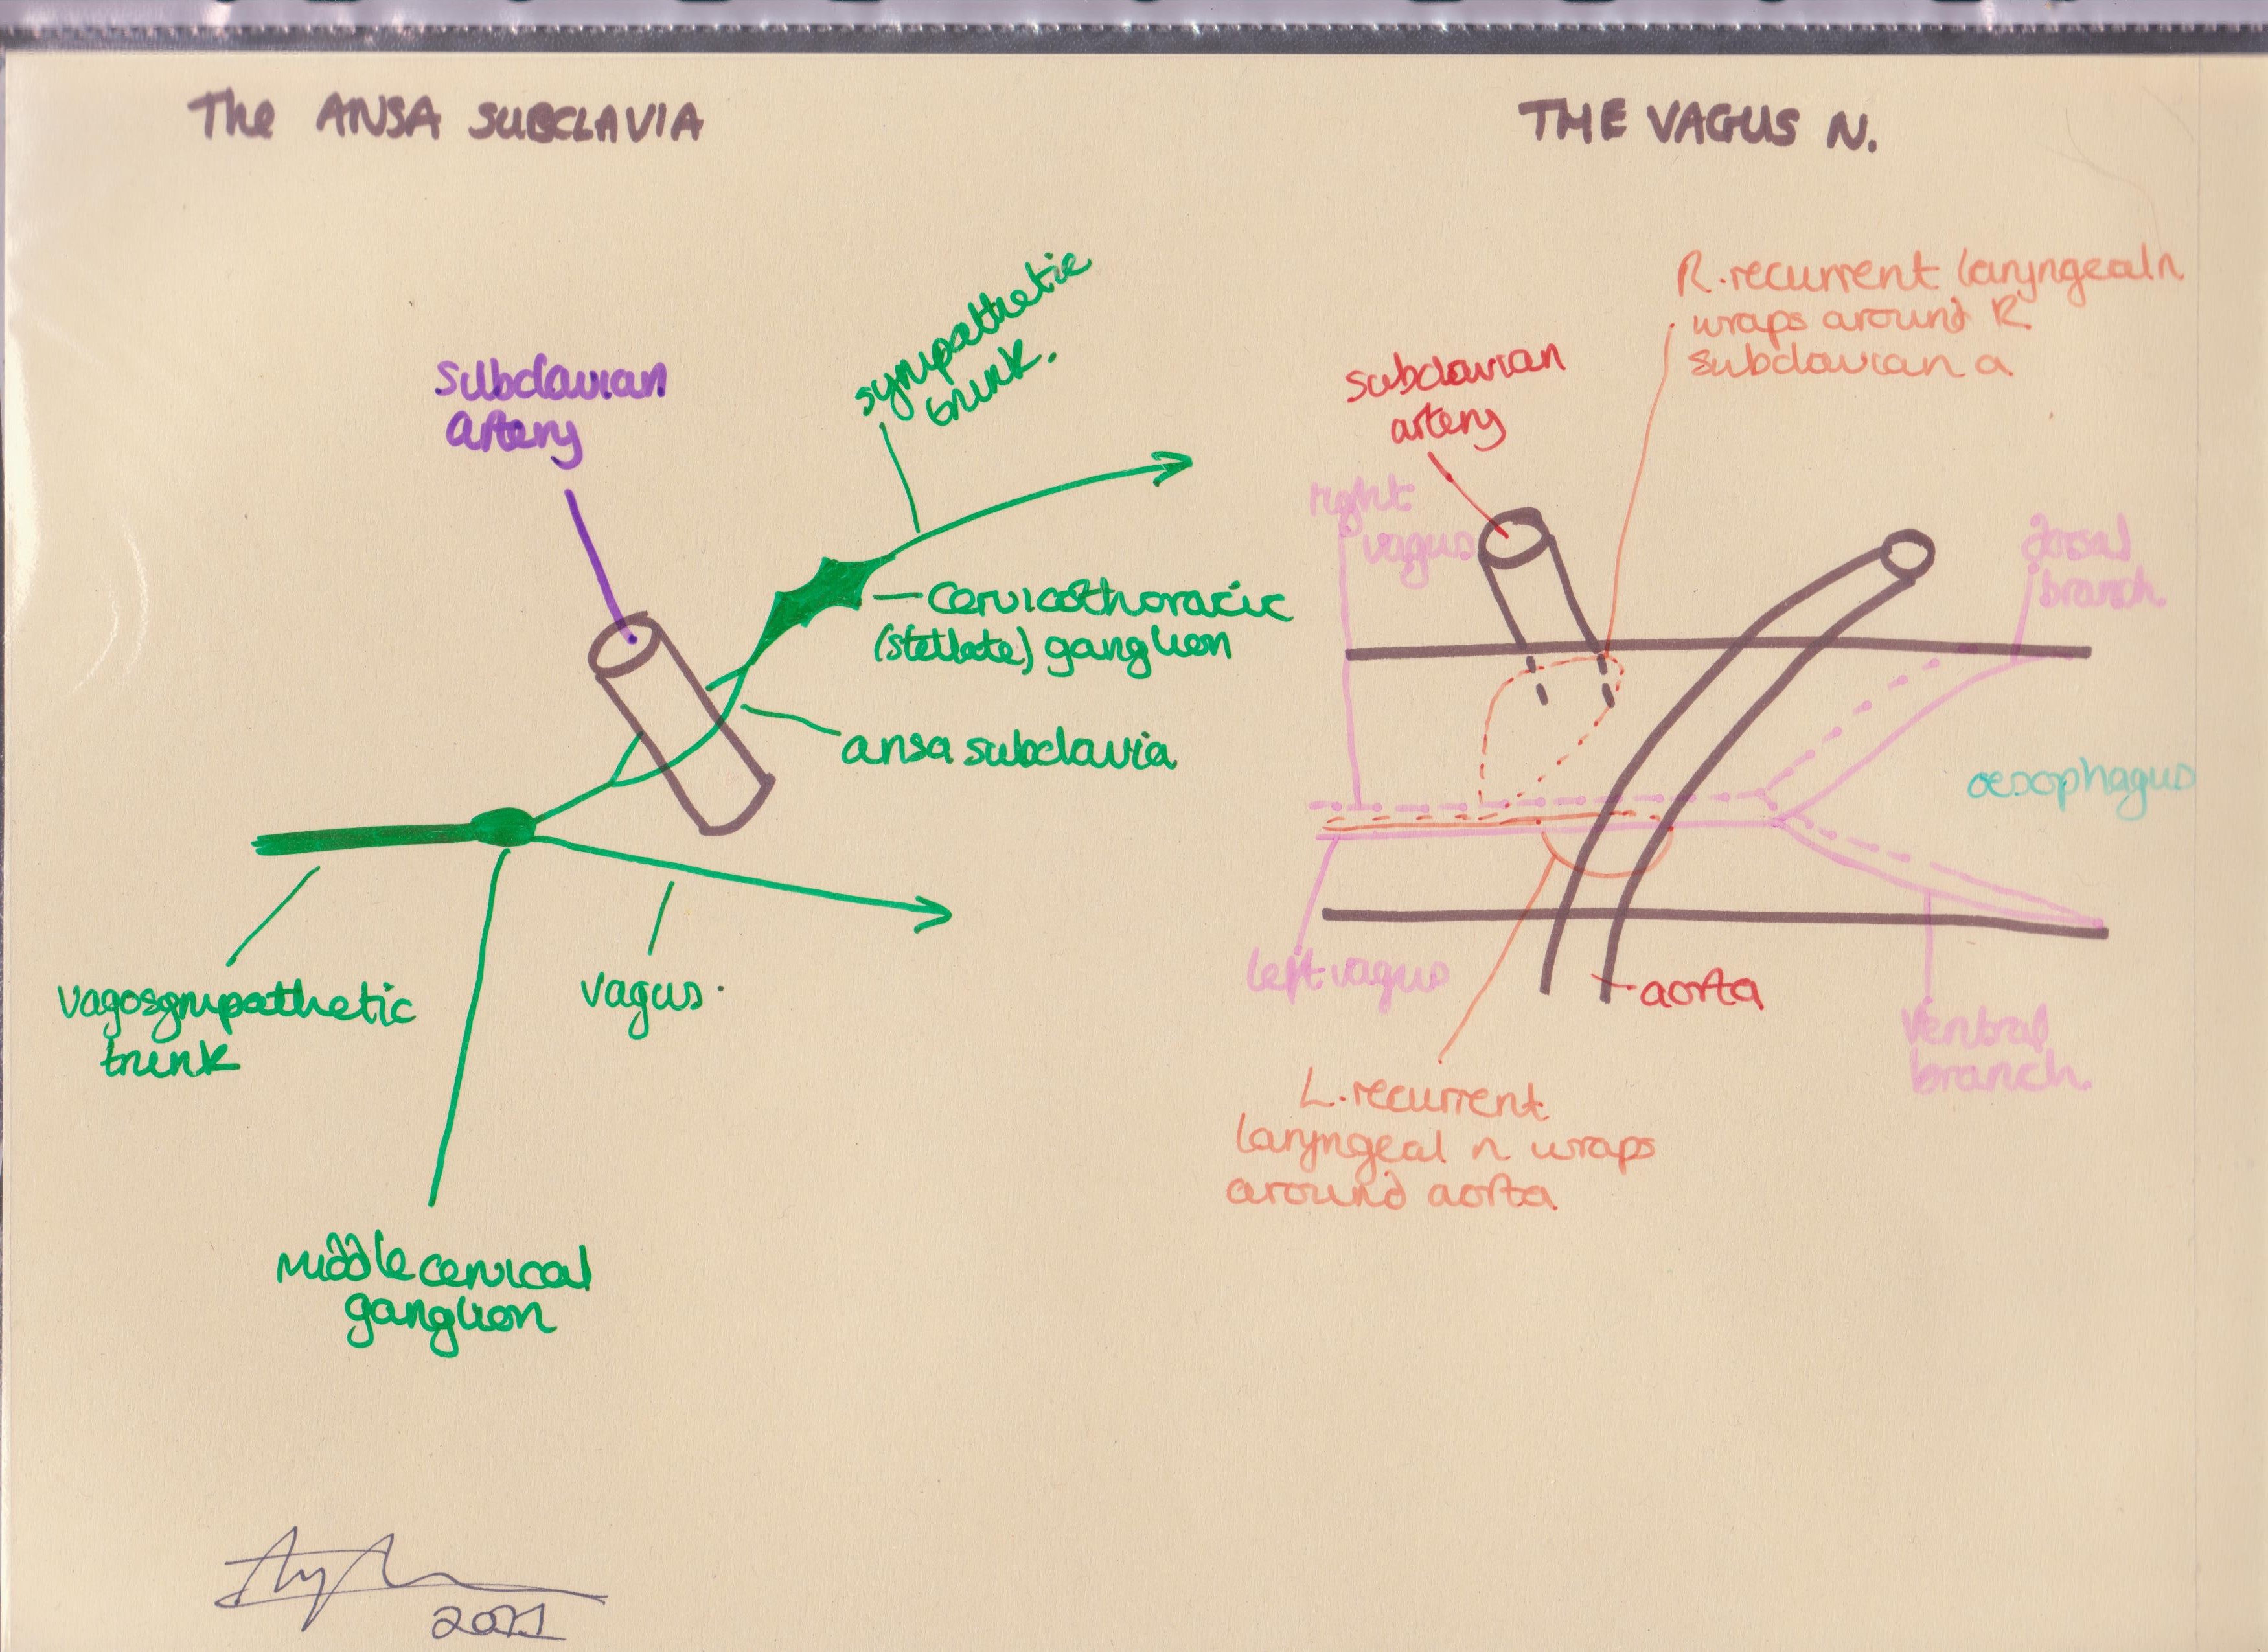 The ANSA SUBCLAVIA
subclavian
artery
sympathetic
trunk.
cervicothoracic
(stellate) ganglion
ansa subclavia
vagosympathetic
trunk
vagus.
middle cervical
ganglion
2011
THE VAGUS N.
R. recurrent laryngeal n
wraps around R
subclavian a
subclavian
artery
right
vagus
dorsal
branch
oesophagus
left vagus
aorta
ventral
branch.
L. recurrent
laryngeal n wraps
around aorta